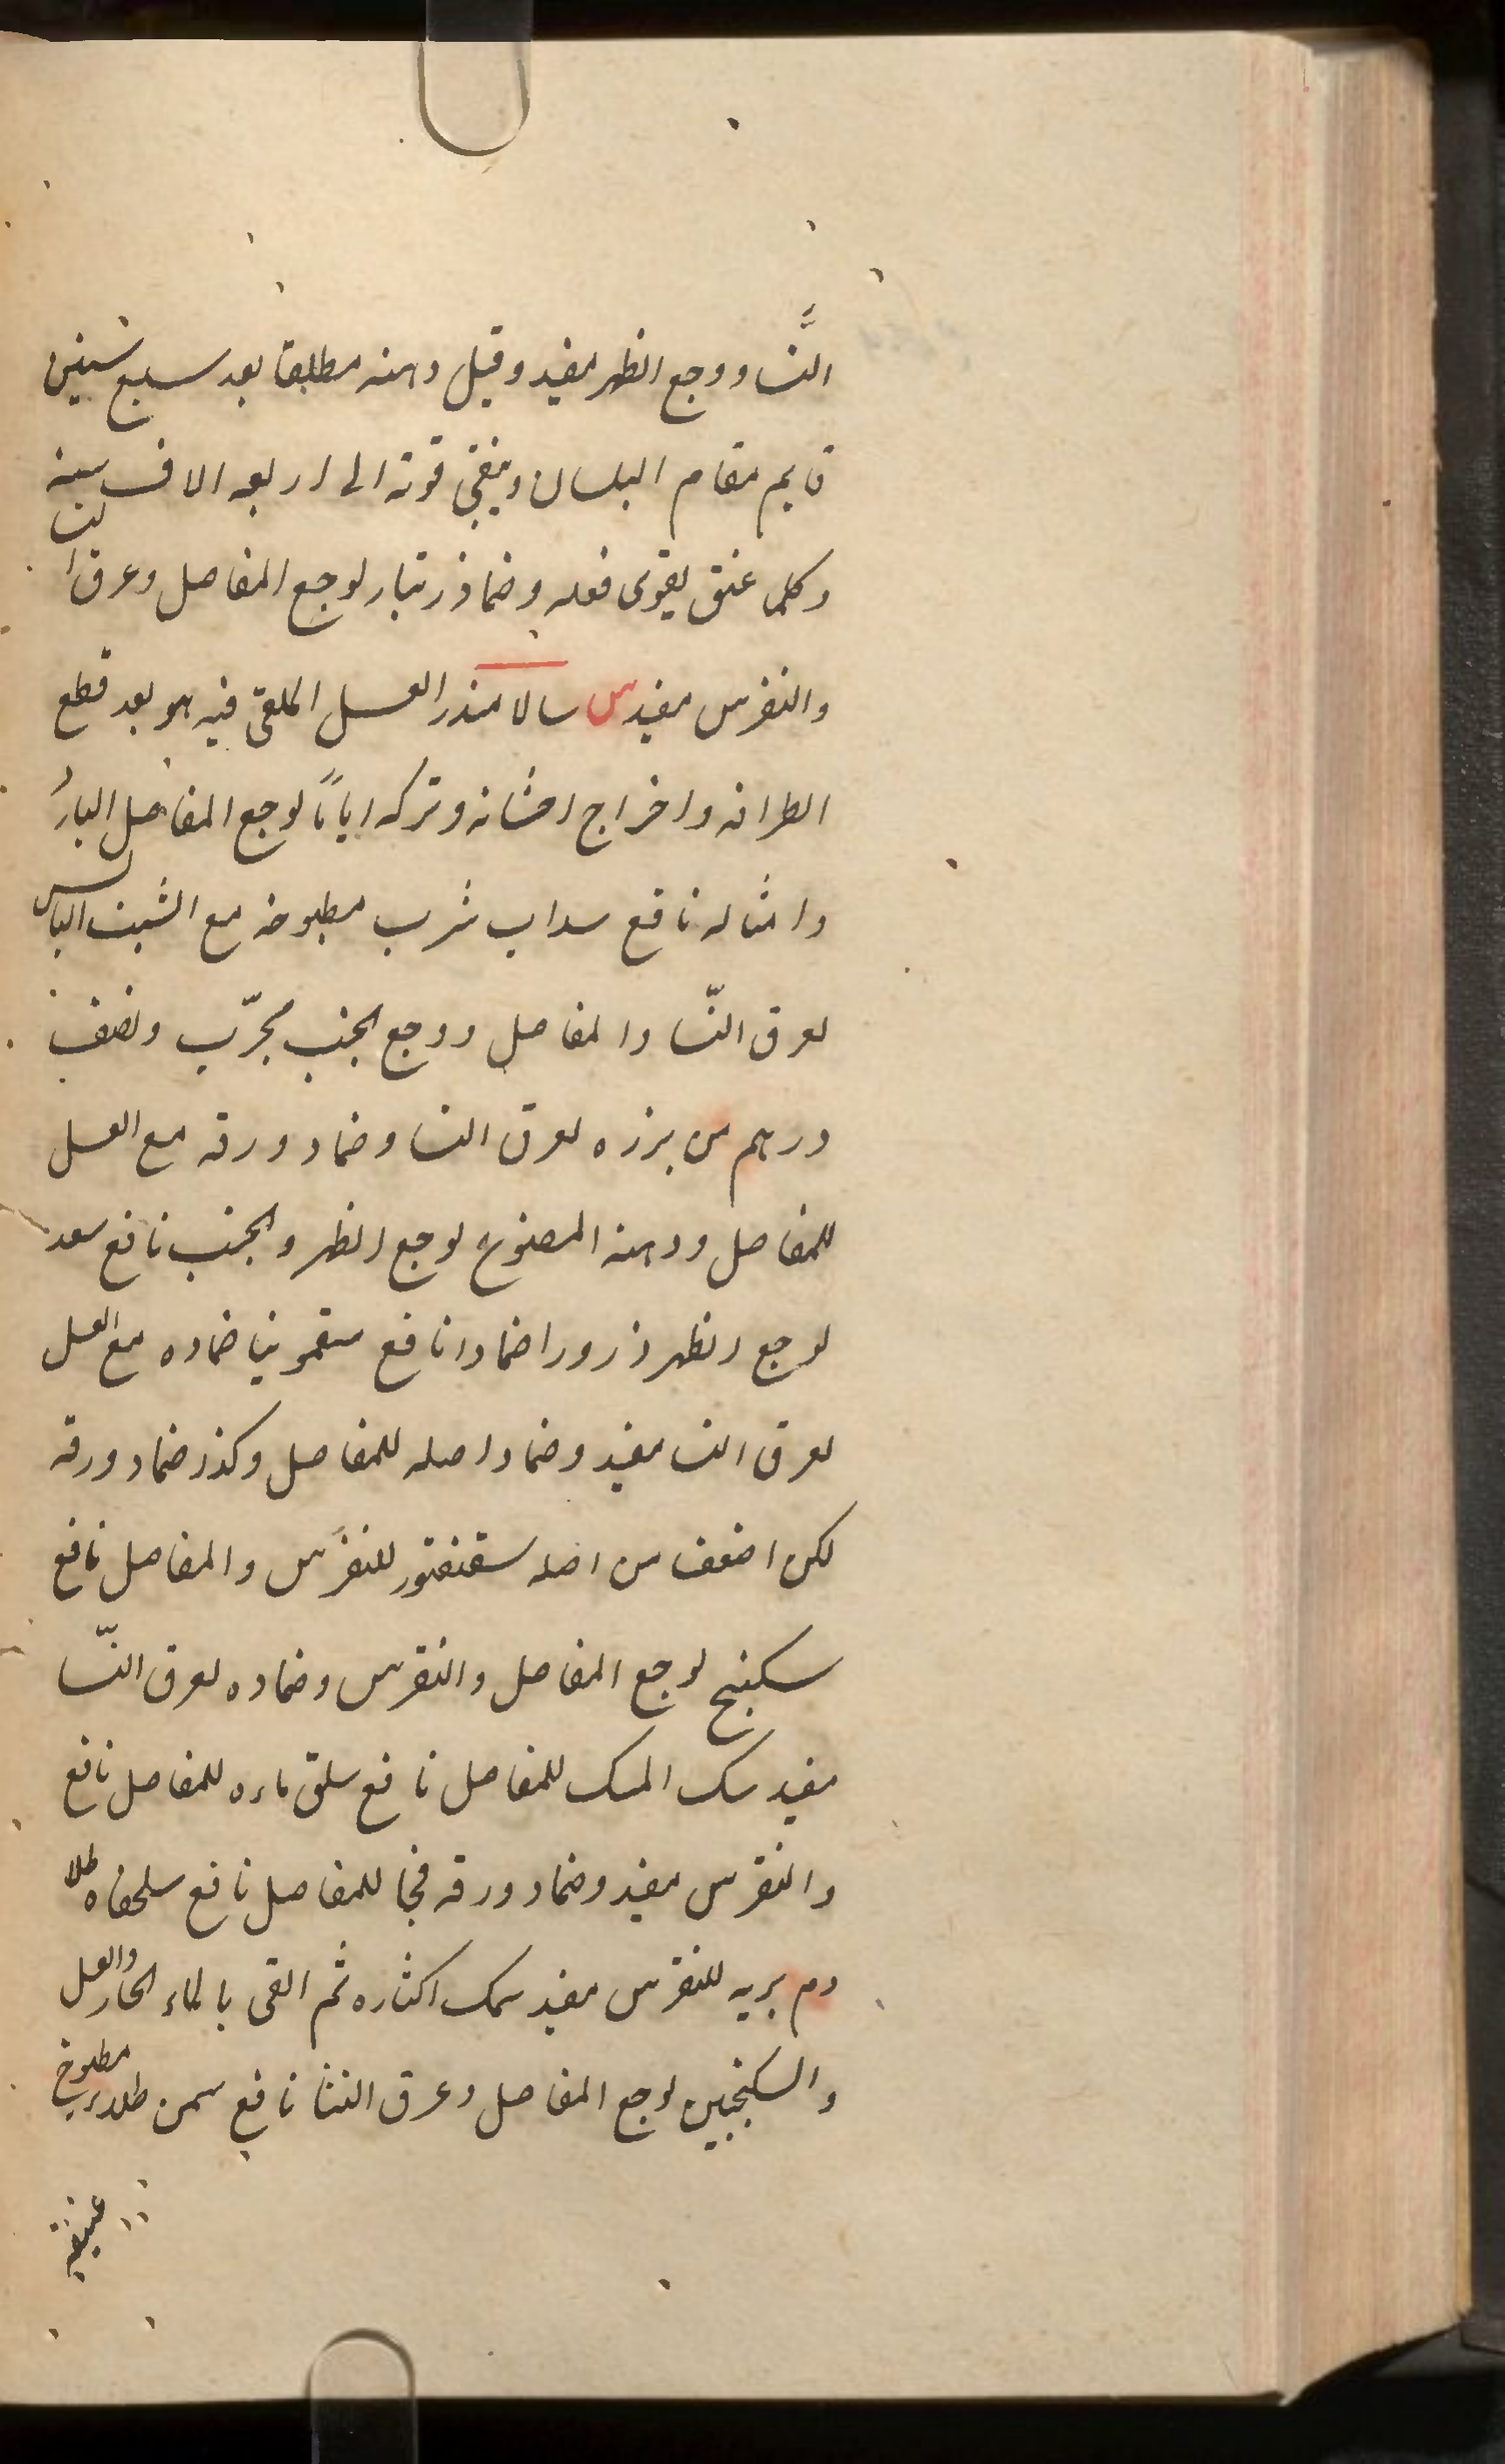 النَّسا ووجع الظهر مفيد وقيل دهنه مطلقا بعد سبع سنين
قايم مقام البلسان ويبقى قوته الى اربعه الاف سنه
وكلما عتق يقوى فعله وضماد زنبار لوجع المفاصل وعرق النسا
والنقرس مفيد س سالامندرا العسل الملقى فيه هو بعد قطع
اطرافه واخراج احشائه وتركه اياماً لوجع المفاصل البارد
وامثاله نافع سداب شرب مطبوخه مع الشبت اليابس
لعرق النّسا والمفاصل ووجع الجنب مجرّب ونصف
درهم من بزره لعرق النسا وضماد ورقه مع العسل
للمفاصل ودهنه المصنوع لوجع الظهر والجنب نافع سعد
لوجع الظهر ذرورا ضمادا نافع سقمونيا ضماده مع العسل
لعرق النسا مفيد وضماد اصله للمفاصل وكذا ضماد ورقه
لكن اضعف من اصله سقنقور للنقرس والمفاصل نافع
سكبينج لوجع المفاصل والنقرس وضماده لعرق النّسا
مفيد سك المسك للمفاصل نافع سلق ماءه للمفاصل نافع
والنقرس مفيد وضماد ورقه فجا للمفاصل نافع سلحفاه طلا
دم بريه للنقرس مفيد سمك اكثاره ثم القى بالماء الحار والعسل
والسكنجبين لوجع المفاصل وعرق النسا نافع سمن طلاء مطبوخ
عتيقه